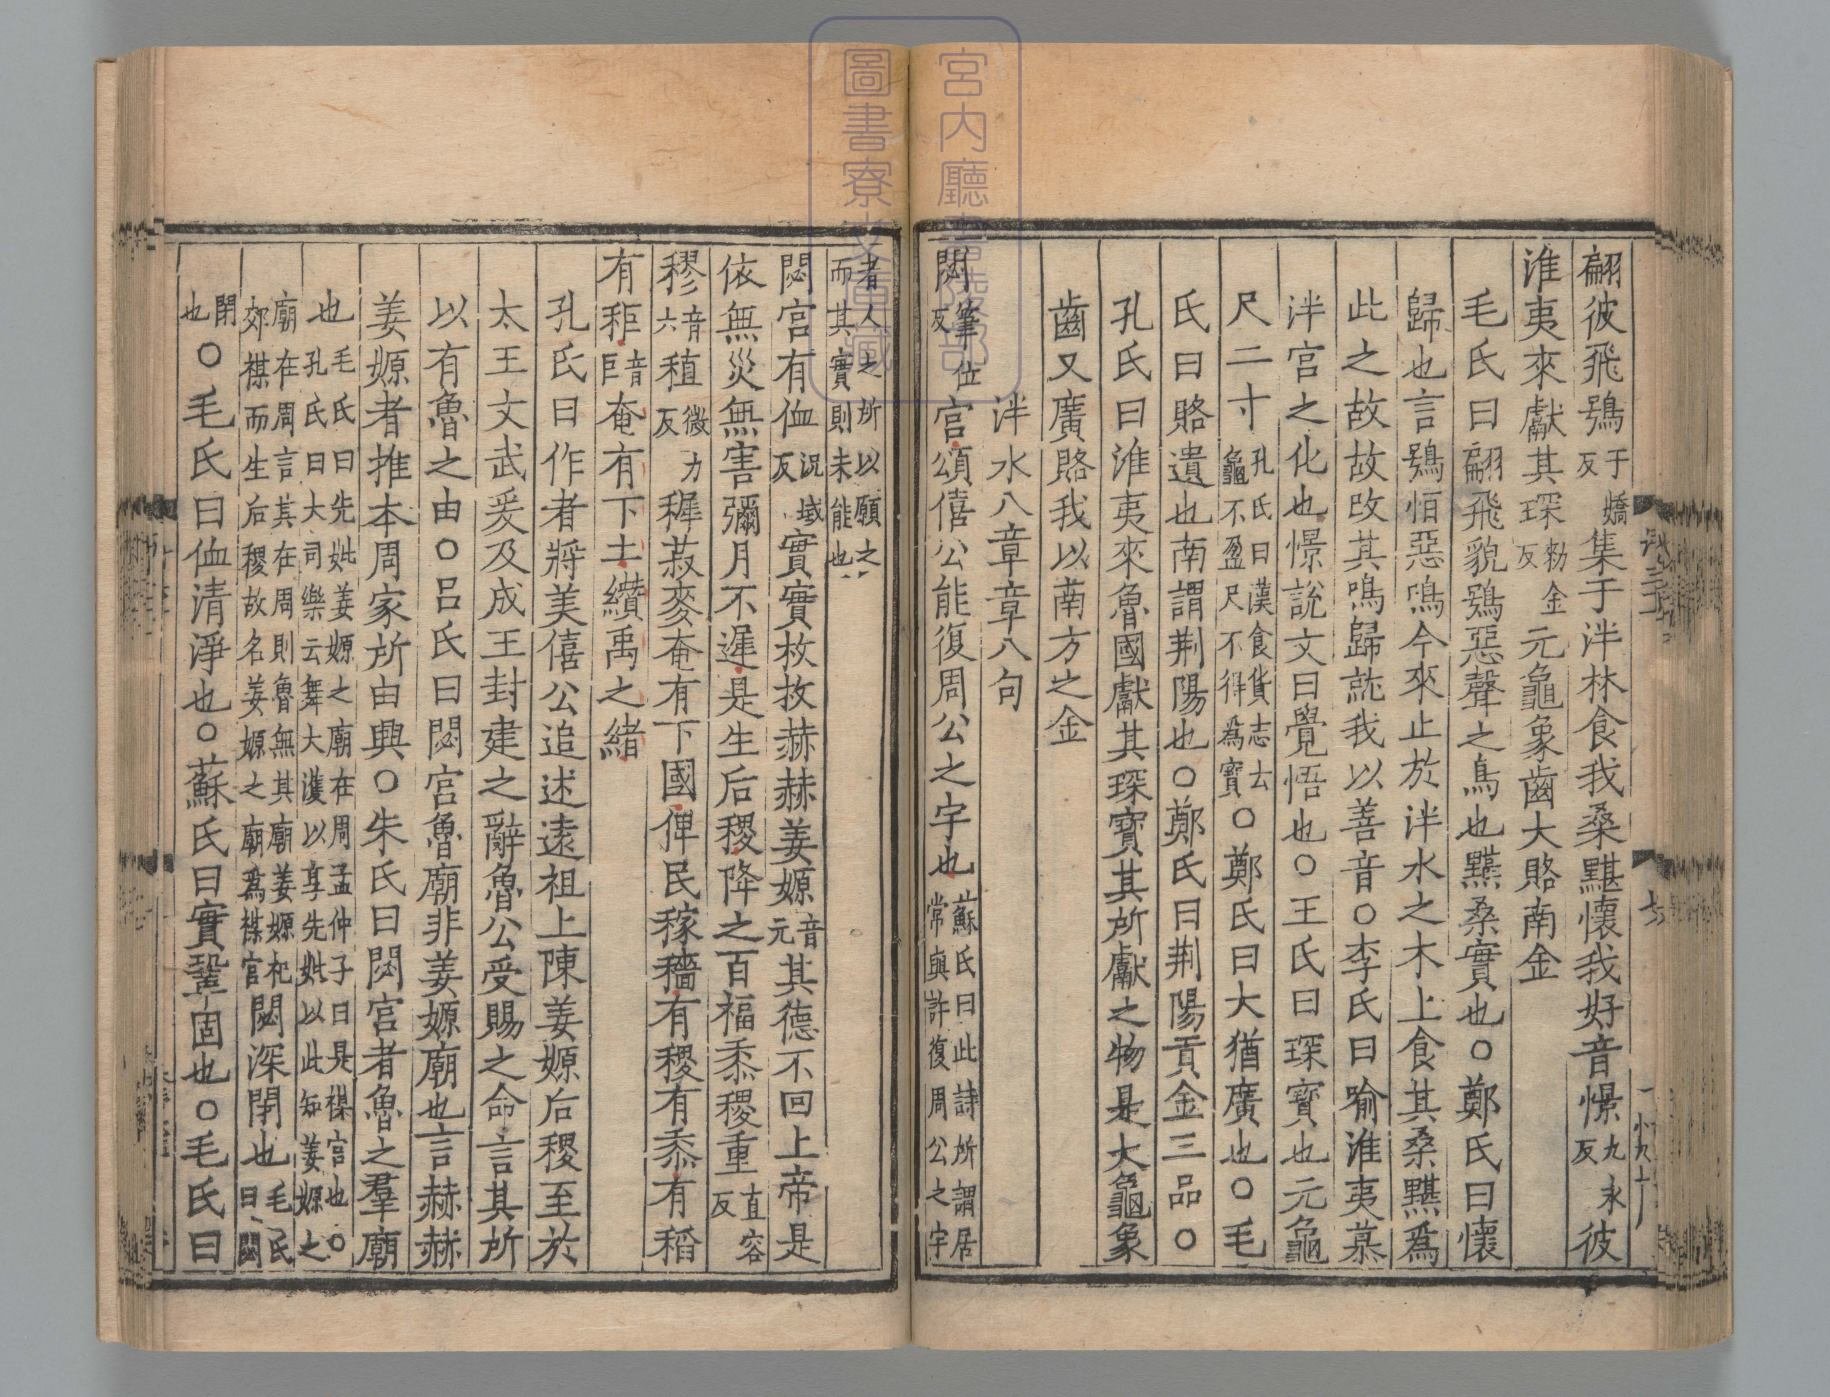 翩彼飛鴞于嬌反集于泮林食我桑黮懷我好音憬九永反彼
淮夷來獻其琛勑金反元龜象齒大賂南金
毛氏曰翩飛貌鴞惡聲之鳥也黮桑實也○鄭氏曰懷
歸也言鴞恒惡鳴今來止於泮水之木上食其桑黮爲
此之故故改其鳴歸就我以善音○李氏曰喻淮夷慕
泮宮之化也憬說文曰覺悟也○王氏曰琛寶也元龜
尺二寸孔氏曰漢食貨志云龜不盈尺不得爲寶○鄭氏曰大猶廣也○毛
氏曰賂遺也南謂荆陽也○鄭氏曰荆陽貢金三品○
孔氏曰淮夷來魯國獻其琛寶其所獻之物是大龜象
齒又廣賂我以南方之金
泮水八章章八句
閟筆位反宮頌僖公能復周公之宇也蘇氏曰此詩所謂居常與許復周公之宇
者人之所以願之而其實則未能也
閟宮有侐況域反實實枚枚赫赫姜嫄音元其德不回上帝是
依無災無害彌月不遲是生后稷降之百福黍稷重直容反
穋音六稙徵力反穉菽麥奄有下國俾民稼穡有稷有黍有稻
有秬音巨奄有下土纘禹之緒
孔氏曰作者將美僖公追述遠祖上陳姜嫄后稷至於
太王文武爰及成王封建之辭魯公受賜之命言其所
以有魯之由○呂氏曰閟宮魯廟非姜嫄廟也言赫赫
姜嫄者推本周家所由興○朱氏曰閟宮者魯之羣廟
也毛氏曰先妣姜嫄之廟在周孟仲子曰是禖宮也○孔氏曰大司樂云舞大濩以享先妣以此知姜嫄之
廟在周言其在周則魯無其廟姜嫄祀郊禖而生后稷故名姜嫄之廟爲禖宮閟深閉也毛氏曰閟
閉也○毛氏曰侐清淨也○蘇氏曰實鞏固也○毛氏曰
宮內廳書陵部
圖書寮文庫藏